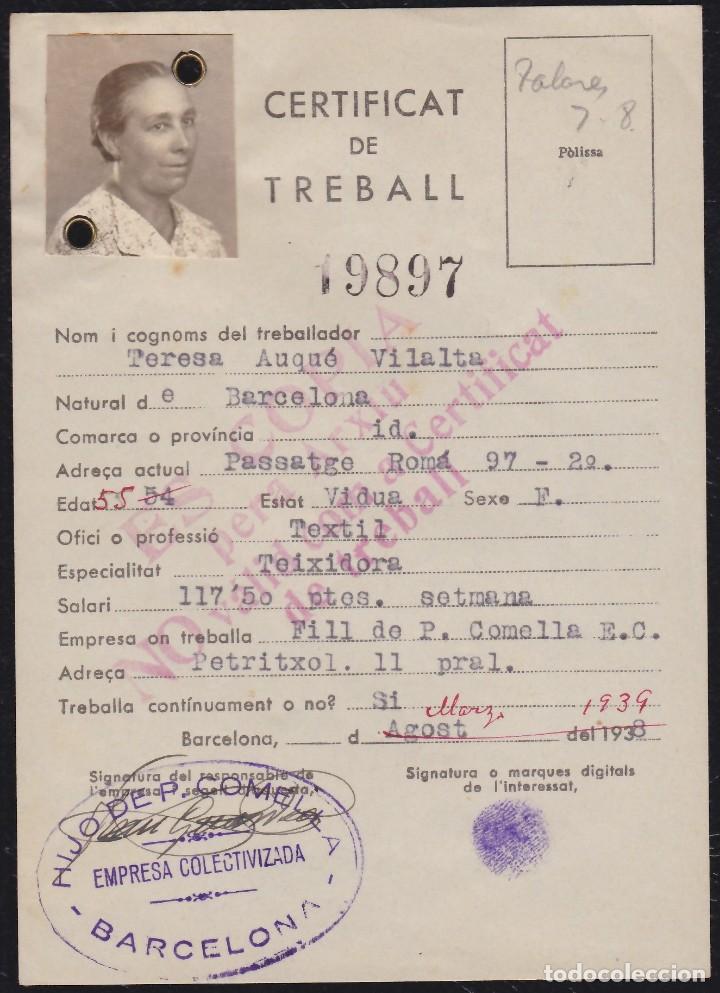 CERTIFICAT
DE
TREBALL
7-8.
Pòlissa
19897
Nom i cognoms del treballador
Teresa Auqué Vilalta
Natural d e Barcelona
Comarca o província id.
Adreça actual Passatge Romá 97 - 2º.
Edat 55 54 Estat Vidua Sexe F.
Ofici o professió Textil
Especialitat Teixidora
Salari 117'50 ptes. setmana
Empresa on treballa Fill de P. Comella E.C.
Adreça Petritxol. 11 pral.
Treballa contínuament o no? Si
Marz. 1939
Barcelona, d Agost del 1938
Signatura del responsable de
l'empresa i segell d'aquesta,
Signatura o marques digitals
de l'interessat,
ES COPIA
per a Arxiu
NO vàlid com a Certificat
de Treball
HIJO DE P. COMELLA
EMPRESA COLECTIVIZADA
- BARCELONA -
todocoleccion
todocoleccion.net